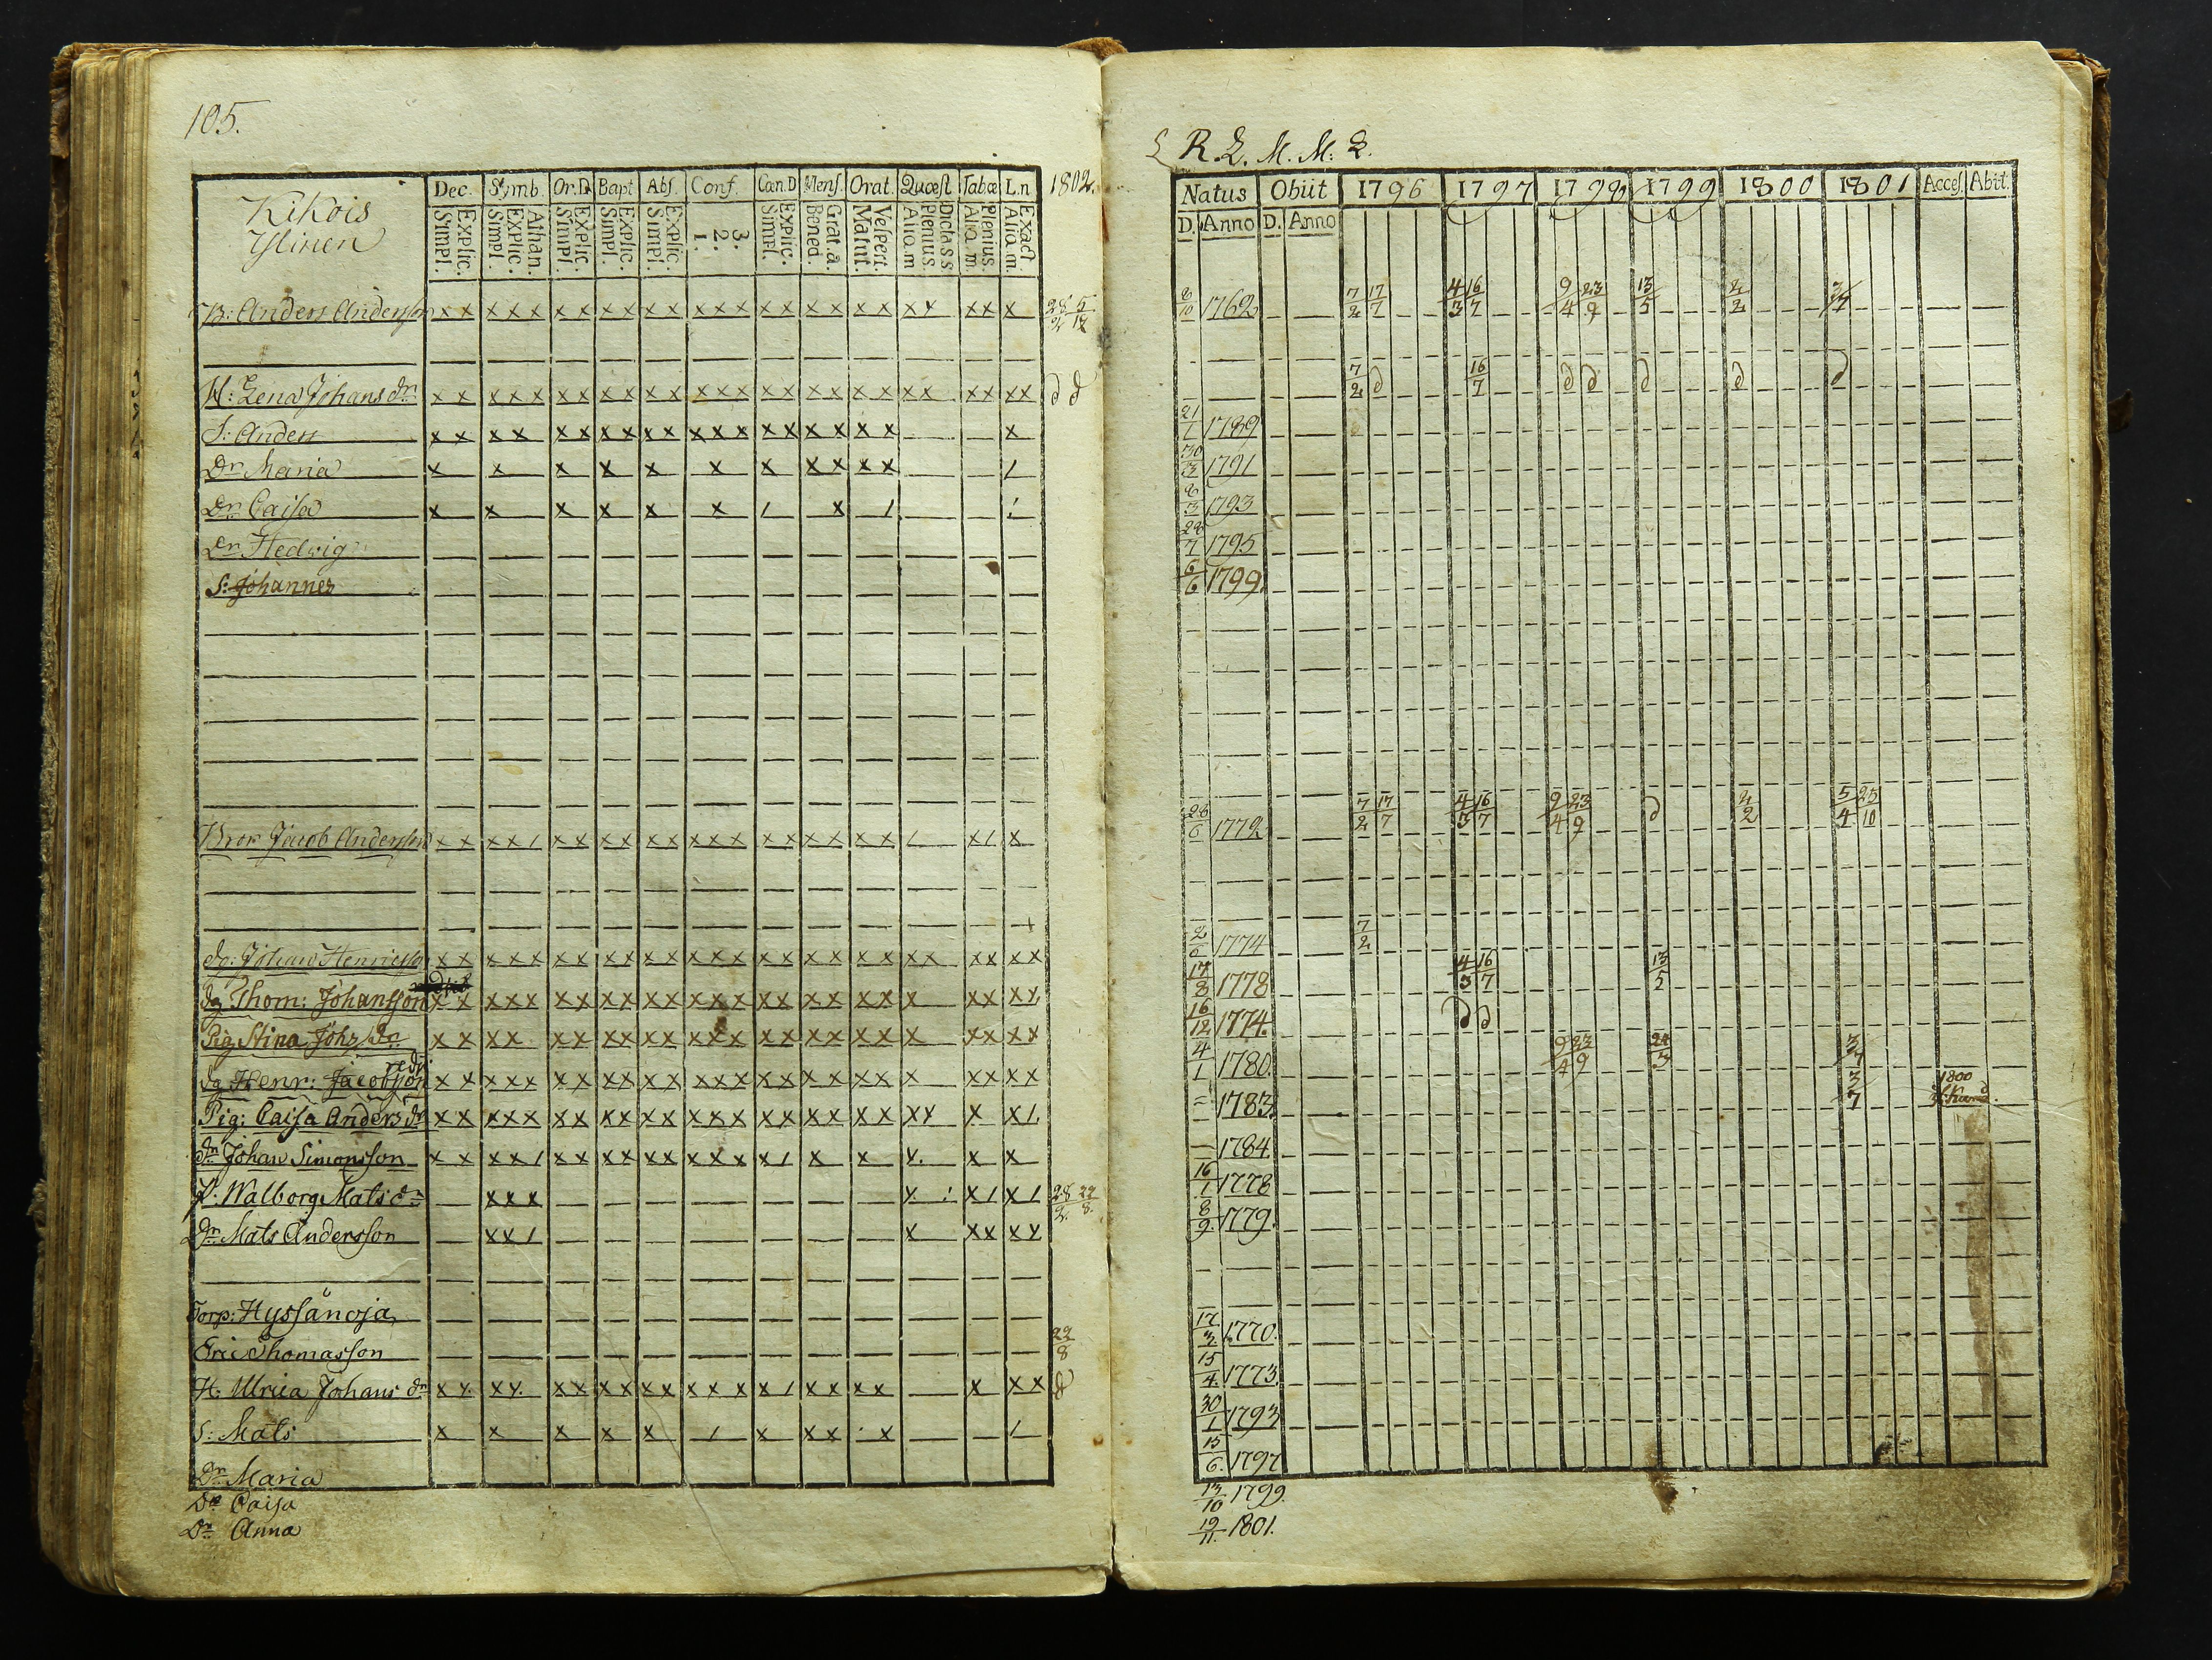 105.
Kikois
Ylinen
Dec. Symb. Or.D. Bapt Abs. Conf. Can.D Mens. Orat. Quæst Tabæ L.n 1802.
Explic. Simpl. Athan. Explic. Simpl. Explic. Simpl. Explic. Simpl. Explic. Simpl. 3. 2. 1. Explic. Simpl. Grat. a. Bened. Vespert. Matut. Dicta s s Plenius. Aliq. m Plenius. Aliq. m. Exact Aliq. m.
B: Anders Andersson x x x x x x x x x x x x x x x x x x x x x x x x x 28/2 5/12
H: Lena Johans dr x x x x x x x x x x x x x x x x x x x x x x x x x x d d
S: Anders x x x x x x x x x x x x x x x x x x x x
Dr Maria x x x x x x x x x x x /
Dr Caisa x x x x x x / x / /
Dr Hedwig
S: Johannes
Bror Jacob Andersson x x x x / x x x x x x x x x x x x x x x / x / x
dg: Johan Henricsson x x x x x x x x x x x x x x x x x x x x x x x x x x
dg Thom: Johansson x x x x x x x x x x x x x x x x x x x x x x x x x
Pig Stina Joh: dr x x x x x x x x x x x x x x x x x x x x x x x x
dg Henr: Jacobsson x x x x x x x x x x x x x x x x x x x x x x x x x
Pig: Caisa Anders dr x x x x x x x x x x x x x x x x x x x x x x x x /
Dr Johan Simonsson x x x x / x x x x x x x x x x / x x x x x
P. Walborg Mats dr x x x x / x / x / 28/2 22/8
Dr Mats Andersson x x / x x x x x
Torp: Hyssänoja
Eric Thomasson 22/8
H: Ulrica Johans dr x x x x x x x x x x x x x x / x x x x x x x d
S: Mats x x x x x / x x x x /
Dr Maria
Dr Caisa
Dr Anna
R. L. M. M: L.
Natus Obiit 1796 1797 1798 1799 1800 1801 Acces. Abit.
D. Anno D. Anno
8/10 1762 7/2 17/7 4/3 16/7 9/4 23/9 13/5 2/2 3/7
7/2 d 16/7 d d d d d
21/1 1789
30/3 1791
8/3 1793
1795
6/6 1799.
28/6 1772 7/2 17/7 4/3 16/7 9/4 23/9 d 2/2 5/4 25/10
1774 7/2
17/8 1778 4/3 16/7 13/5
16/12 1774. d d
4/1 1780. 9/4 23/9 24/3 3/7
= 1783. 3/7 1800
1784.
16/1 1778
8/9. 1779.
17/3. 1770.
15/4. 1773.
30/1 1793
15/6. 1797
13/10 1799.
19/11. 1801.